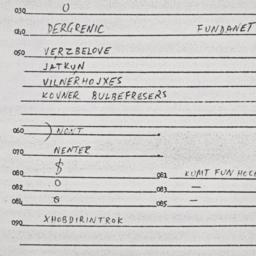 030 0
040 DERGRENIC FUNDANET
050 VERZBELOVE
JATKUN
VILNERHOJXES
KOVNER BULBEFRESERS
060 ) NONT
070 NENTER
080 $ 081 KUMT FUN HOCE
082 0 083 —
084 0 085 —
090 XHOBDIRINTROK